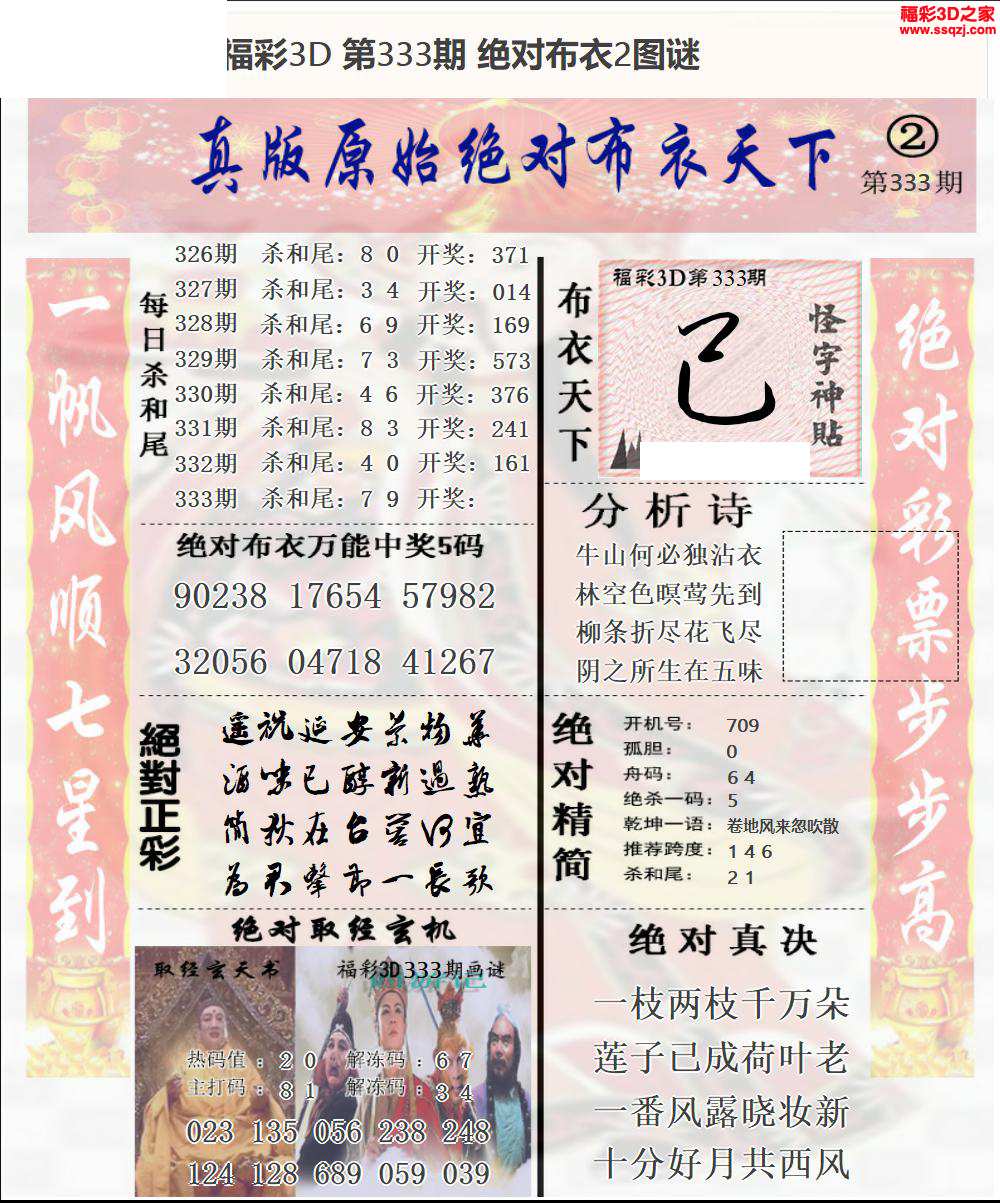 福彩3D之家
www.ssqzj.com
福彩3D 第333期 绝对布衣2图谜
真版原始绝对布衣天下
②
第333期
一帆风顺七星到
每日杀和尾
326期 杀和尾：8 0 开奖：371
327期 杀和尾：3 4 开奖：014
328期 杀和尾：6 9 开奖：169
329期 杀和尾：7 3 开奖：573
330期 杀和尾：4 6 开奖：376
331期 杀和尾：8 3 开奖：241
332期 杀和尾：4 0 开奖：161
333期 杀和尾：7 9 开奖：
绝对布衣万能中奖5码
90238 17654 57982
32056 04718 41267
絕對正彩
遥祝延安景物華
酒味已醇新過熟
簡秋在台
宜
為君擊節一長歌
绝对取经玄机
取经玄天书
福彩3D333期画谜
热码值：2 0 解冻码：6 7
主打码：8 1 解冻码：3 4
023 135 056 238 248
124 128 689 059 039
布衣天下
福彩3D第333期
己
怪字神贴
分析诗
牛山何必独沾衣
林空色暝莺先到
柳条折尽花飞尽
阴之所生在五味
绝对精简
开机号： 709
孤胆： 0
舟码： 6 4
绝杀一码： 5
乾坤一语： 卷地风来忽吹散
推荐跨度： 1 4 6
杀和尾： 2 1
绝对真决
一枝两枝千万朵
莲子已成荷叶老
一番风露晓妆新
十分好月共西风
绝对彩票步步高